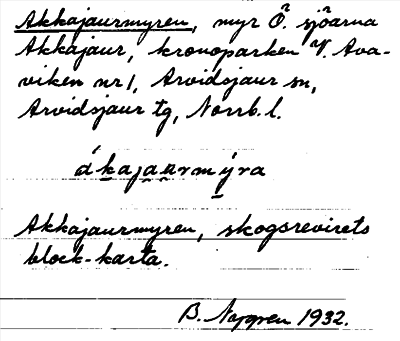 Akkajaurmyren, myr Ö. sjöarna
Akkajaur, kronoparken V. Ava-
viken nr 1, Arvidsjaur sn,
Arvidsjaur tg, Norrb. l.
ákajau̯rmýra
Akkajaurmyren, skogsrevirets
block-karta.
B. Nygren 1932.